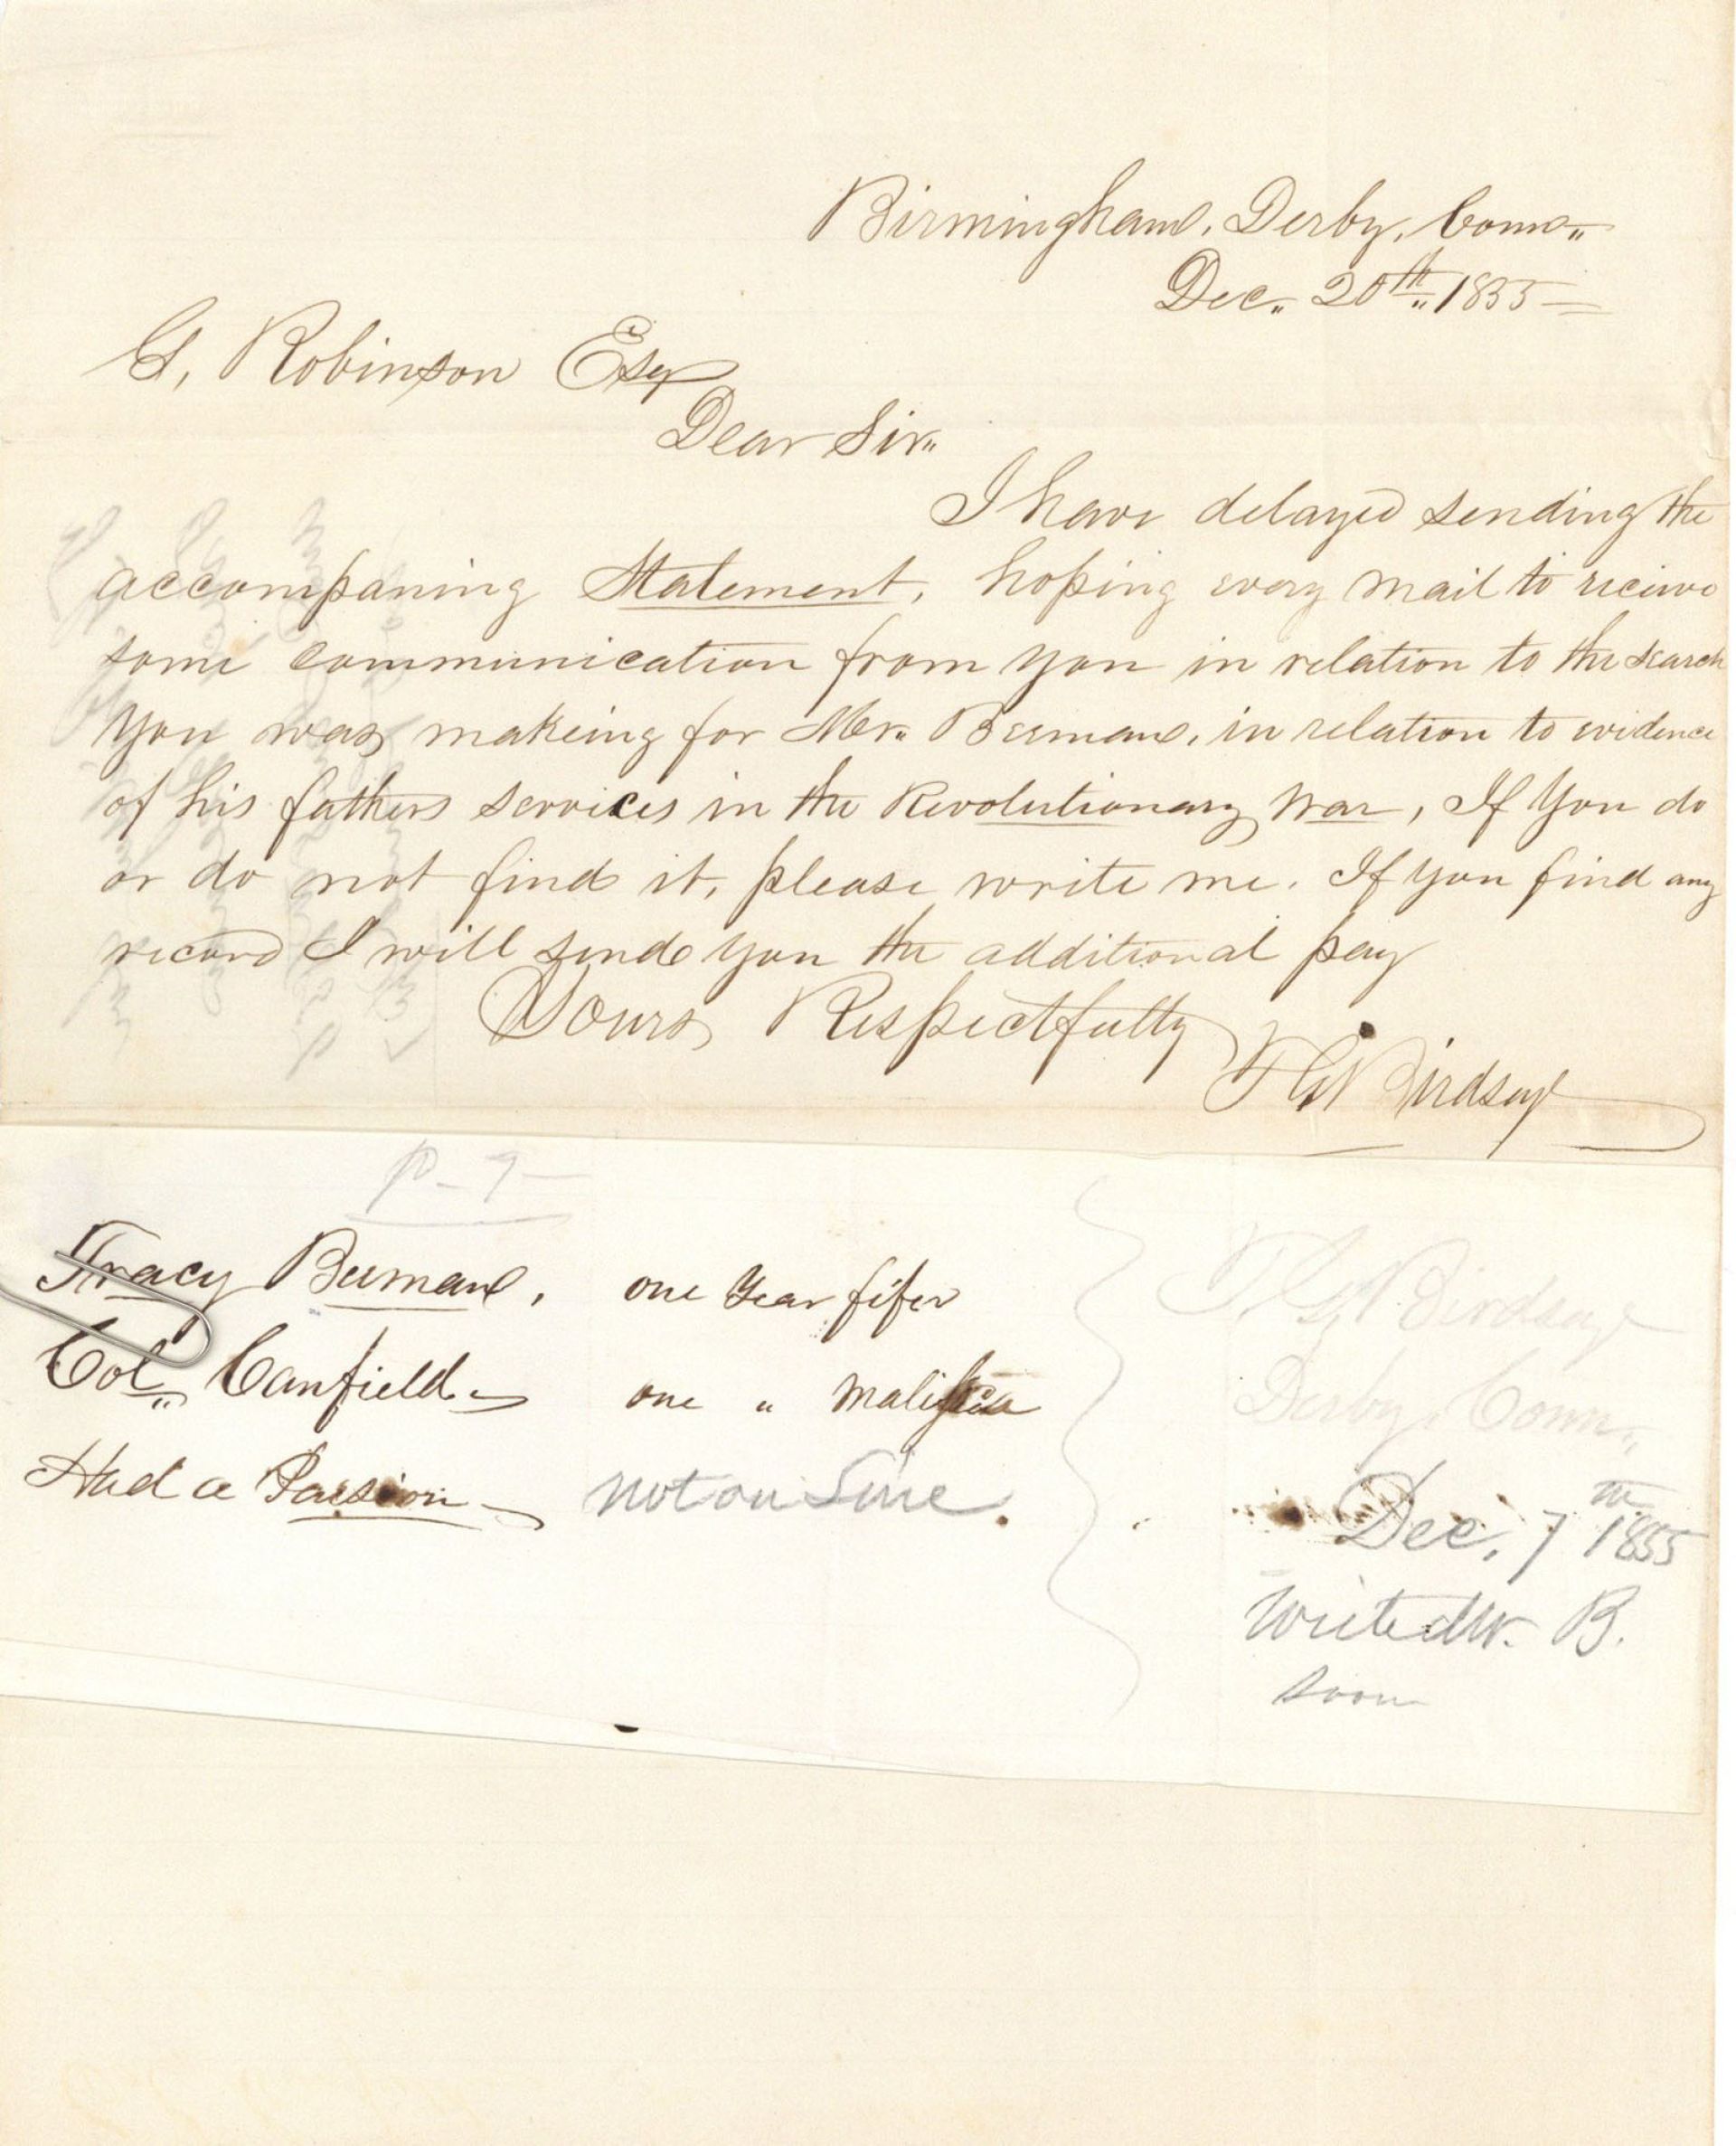 Birmingham, Derby, Conn.
Dec. 20th 1855
G. Robinson Esq
Dear Sir
I have delayed sending the
accompaning Statement, hoping every mail to recieve
some communication from you in relation to the search
you was makeing for Mr. Beeman, in relation to evidence
of his fathers services in the Revolutionary War, If You do
or do not find it, please write me. If you find any
record I will send you the additional pay
Yours Respectfully
T G Birdsey
P-9-
Tracy Beeman, one Year fifer
Col. Canfield one "
Had a not on
T. G. Birdsey
Derby, Conn.
Dec. 7th 1855
Write Mr. B.
soon